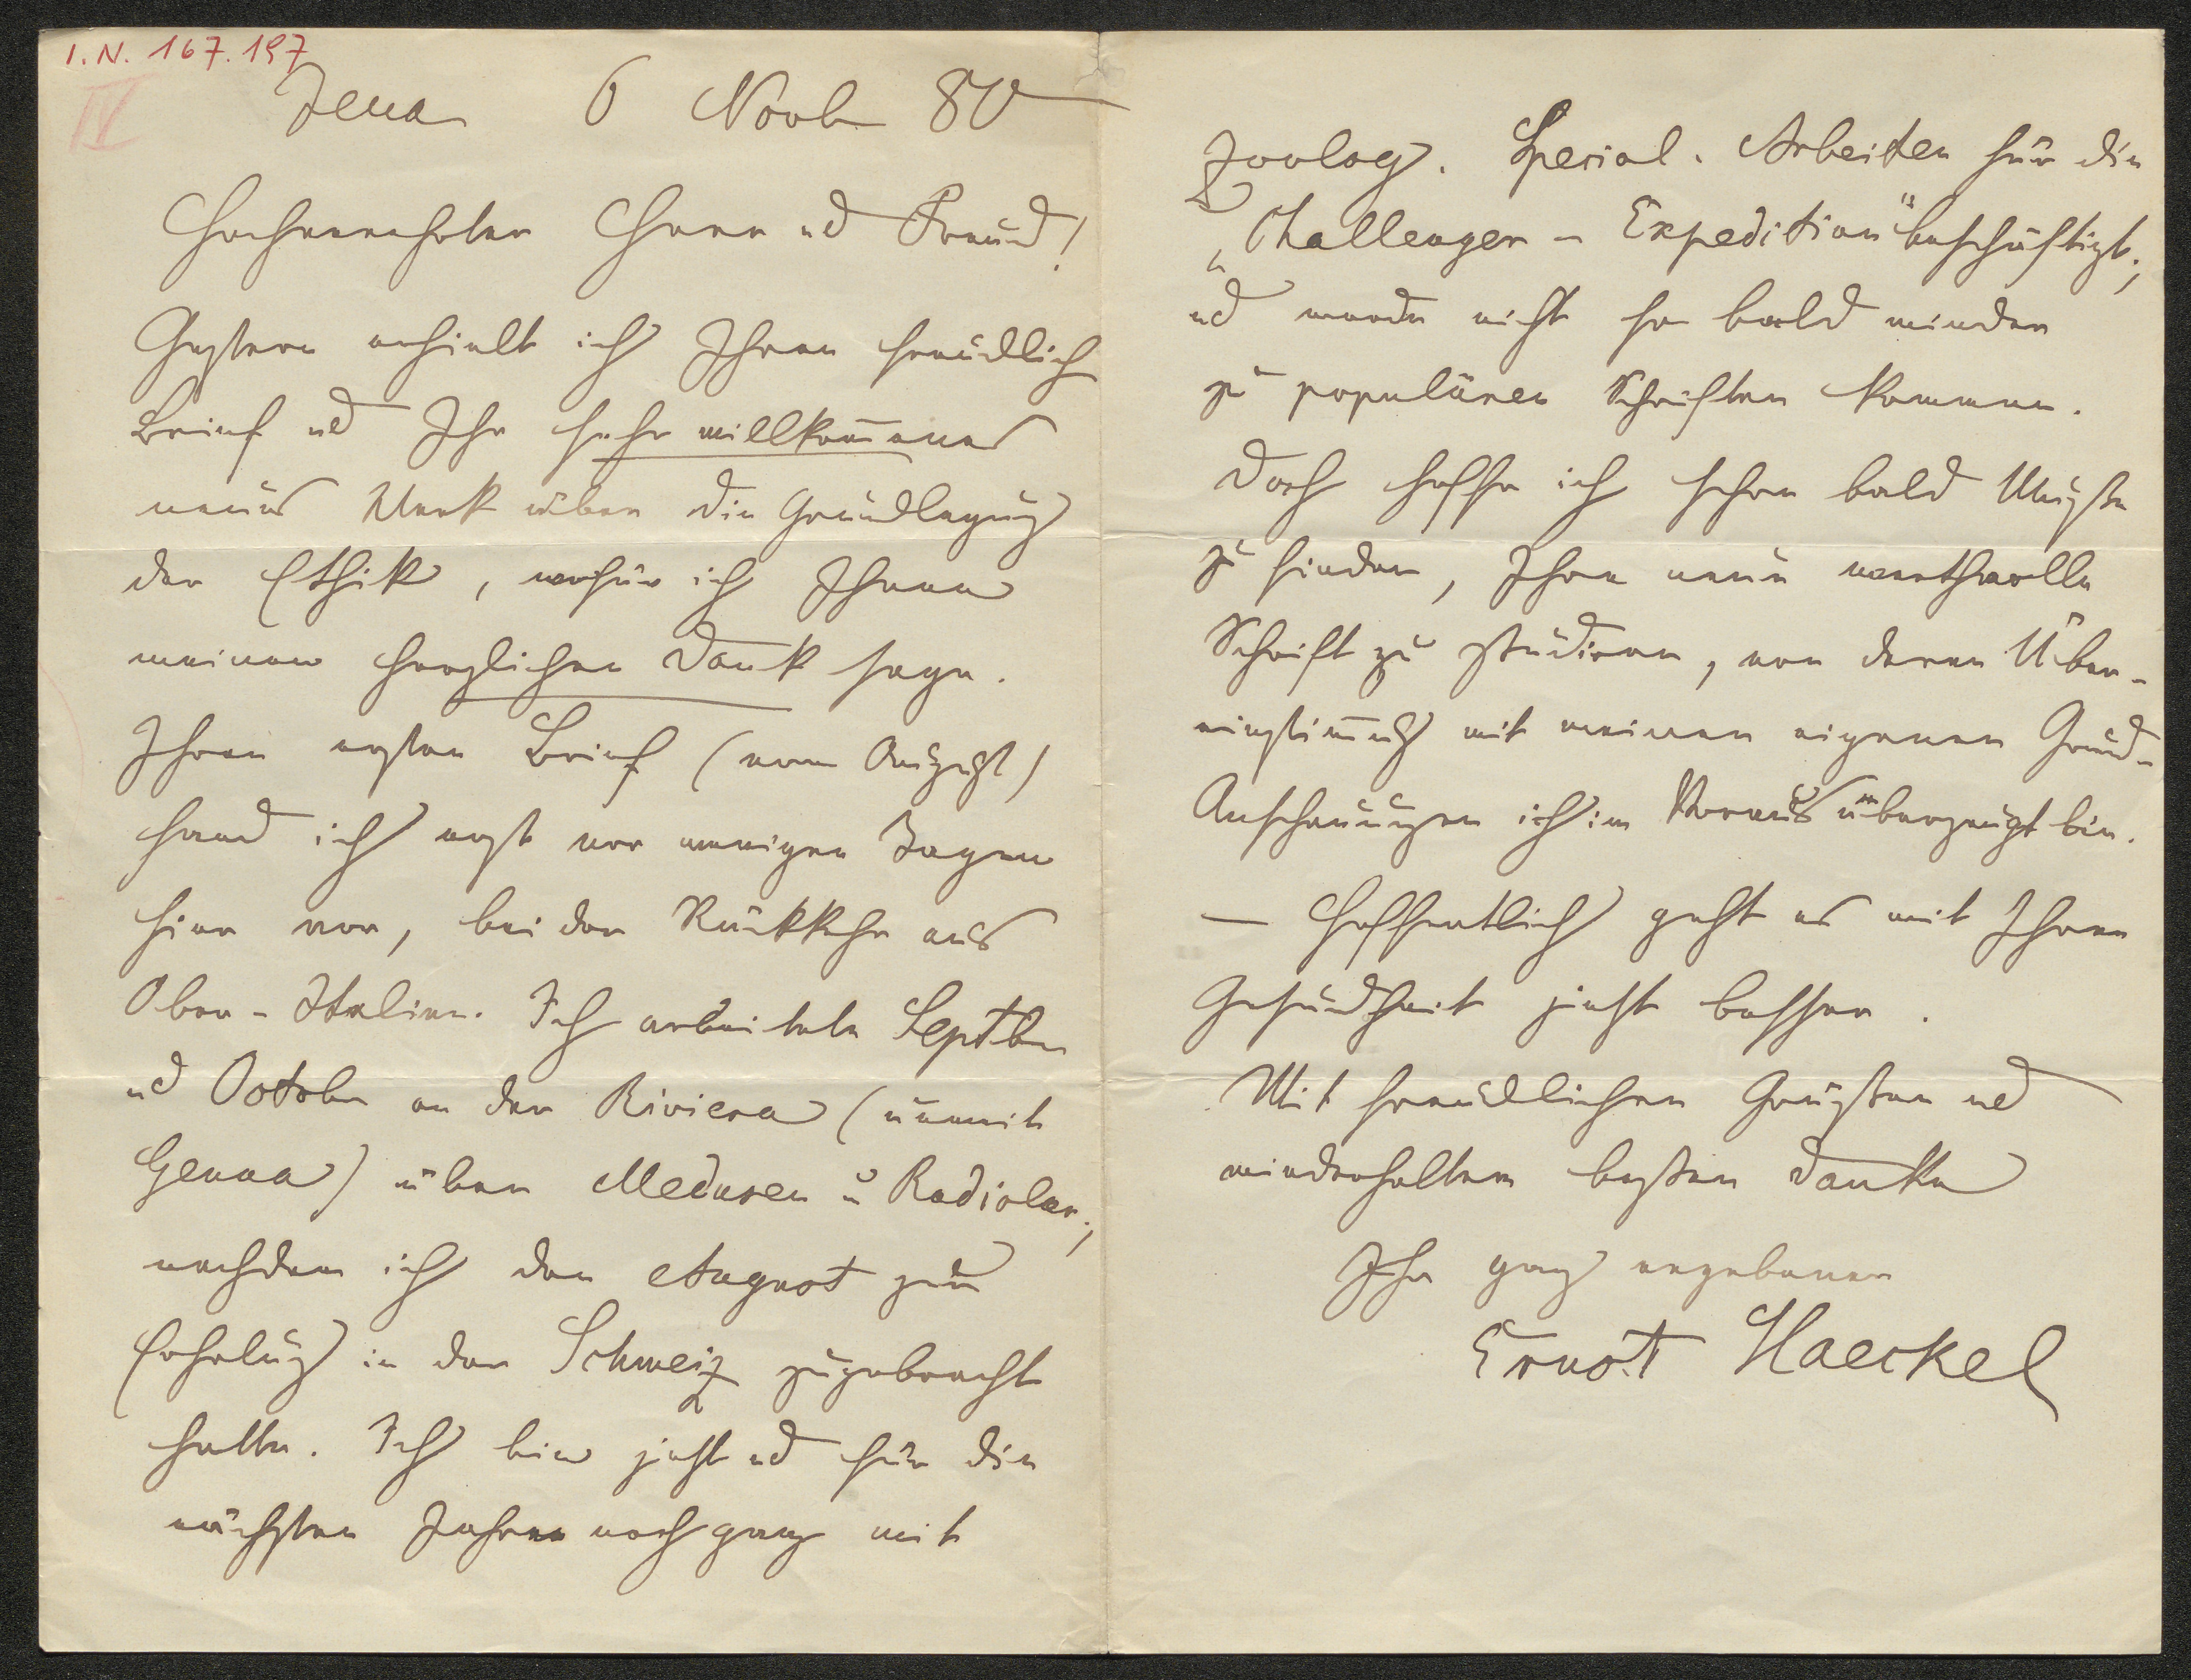 I. N. 167.197
IV
Jena 6 Novb 80
Hochverehrter Herr ud Freund!
Gestern erhielt ich Ihren freudlich
Brief ud Ihr sehr willkom̅enes
neues Werk über die Grundlegung
der Ethik, wofür ich Ihnen
meinen herzlichen Dank sage.
Ihren ersten Brief (vom August)
fand ich erst vor wenigen Tagen
hier vor, bei der Rückkehr aus
Ober-Italien. Ich arbeitete Septbr
ud Octobr an der Riviera (unweit
Genua) über Medusen u Radiolar.,
nachdem ich den August zur
Erholung in der Schweiz zugebracht
hatte. Ich bin jetzt ud für die
nächsten Jahre noch ganz mit
zoolog. Special-Arbeiten für die
„Challenger-Expedition" beschäftigt;
ud werde nicht so bald wieder
zu populären Schriften kommen.
Doch hoffe ich schon bald Muße
zu finden, Ihre neue werthvolle
Schrift zu studiren, von deren Über-
einstim̅ung mit meinen eigenen Grund-
Anschauungen ich im Voraus überzeugt bin.
— Hoffentlich geht es mit Ihrer
Gesundheit jetzt besser.
Mit freundlichen Grüßen ud
wiederholtem besten Danke
Ihr ganz ergebener
Ernst Haeckel